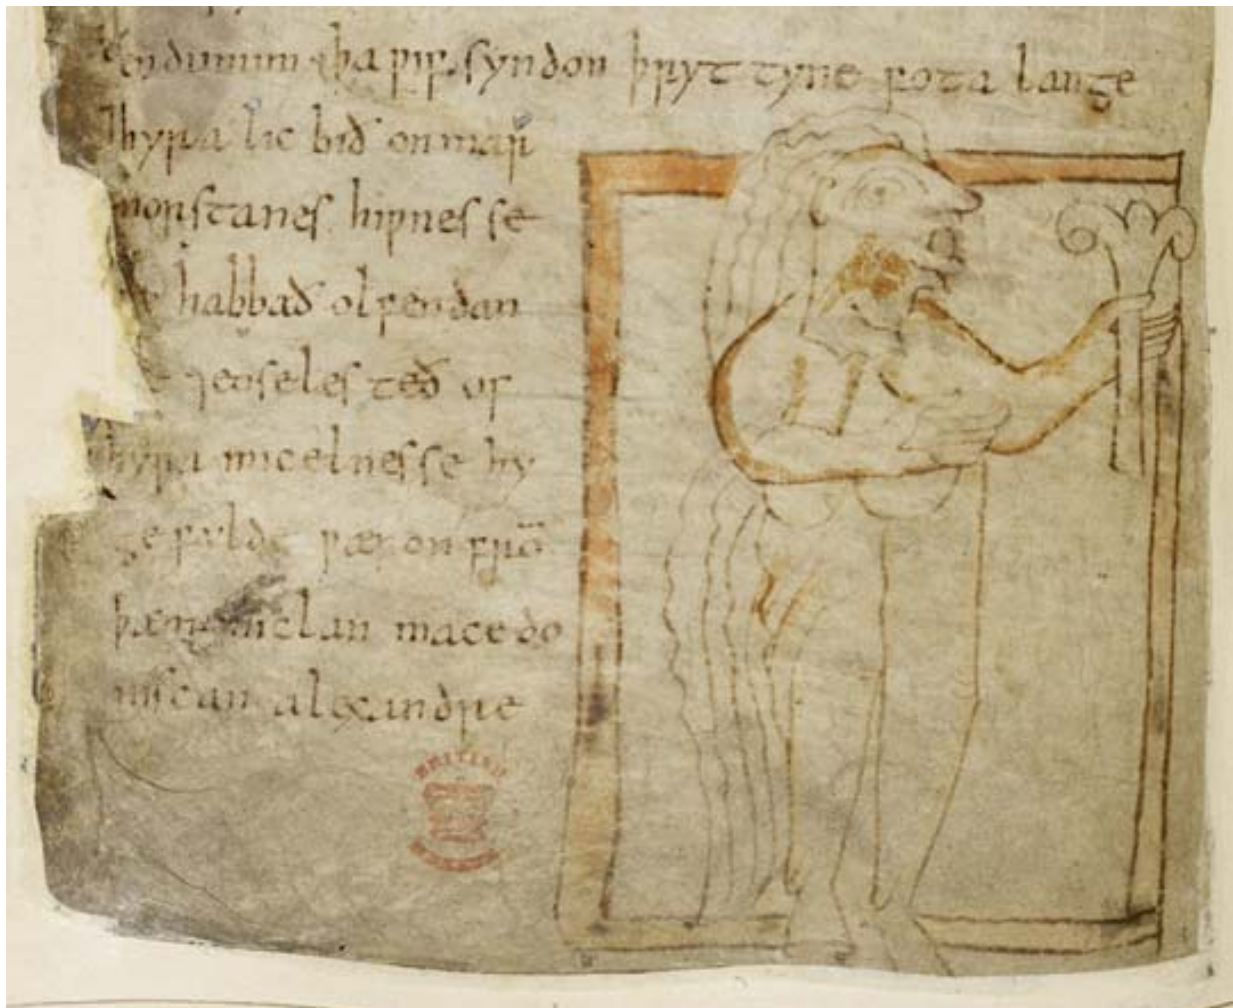 endunum þa ƿif syndon þryttyne fota lange
⁊hyra lic bið onmar
morstanes hiƿnesse
habbað olfendan
⁊eoseles teð of
hyra micelnesse hy
gefælde ƿæron frō
þæm miclan macedo
niscan alexandre